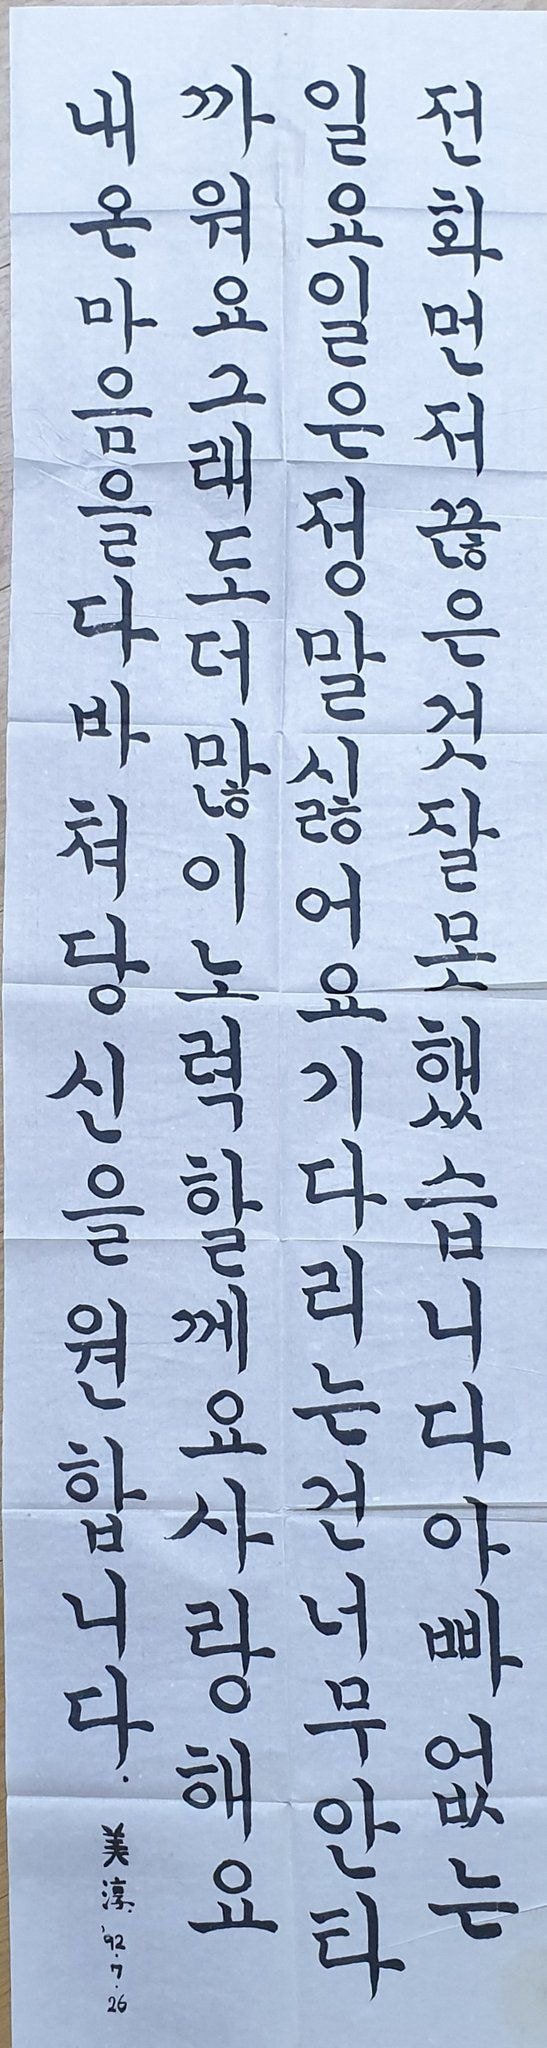 전화먼저끊은것잘못했습니다아빠없는
일요일은정말싫어요기다리는건너무안타
까워요그래도더많이노력할께요사랑해요
내온마음을다바쳐당신을원합니다.
美淳 '92.7.26